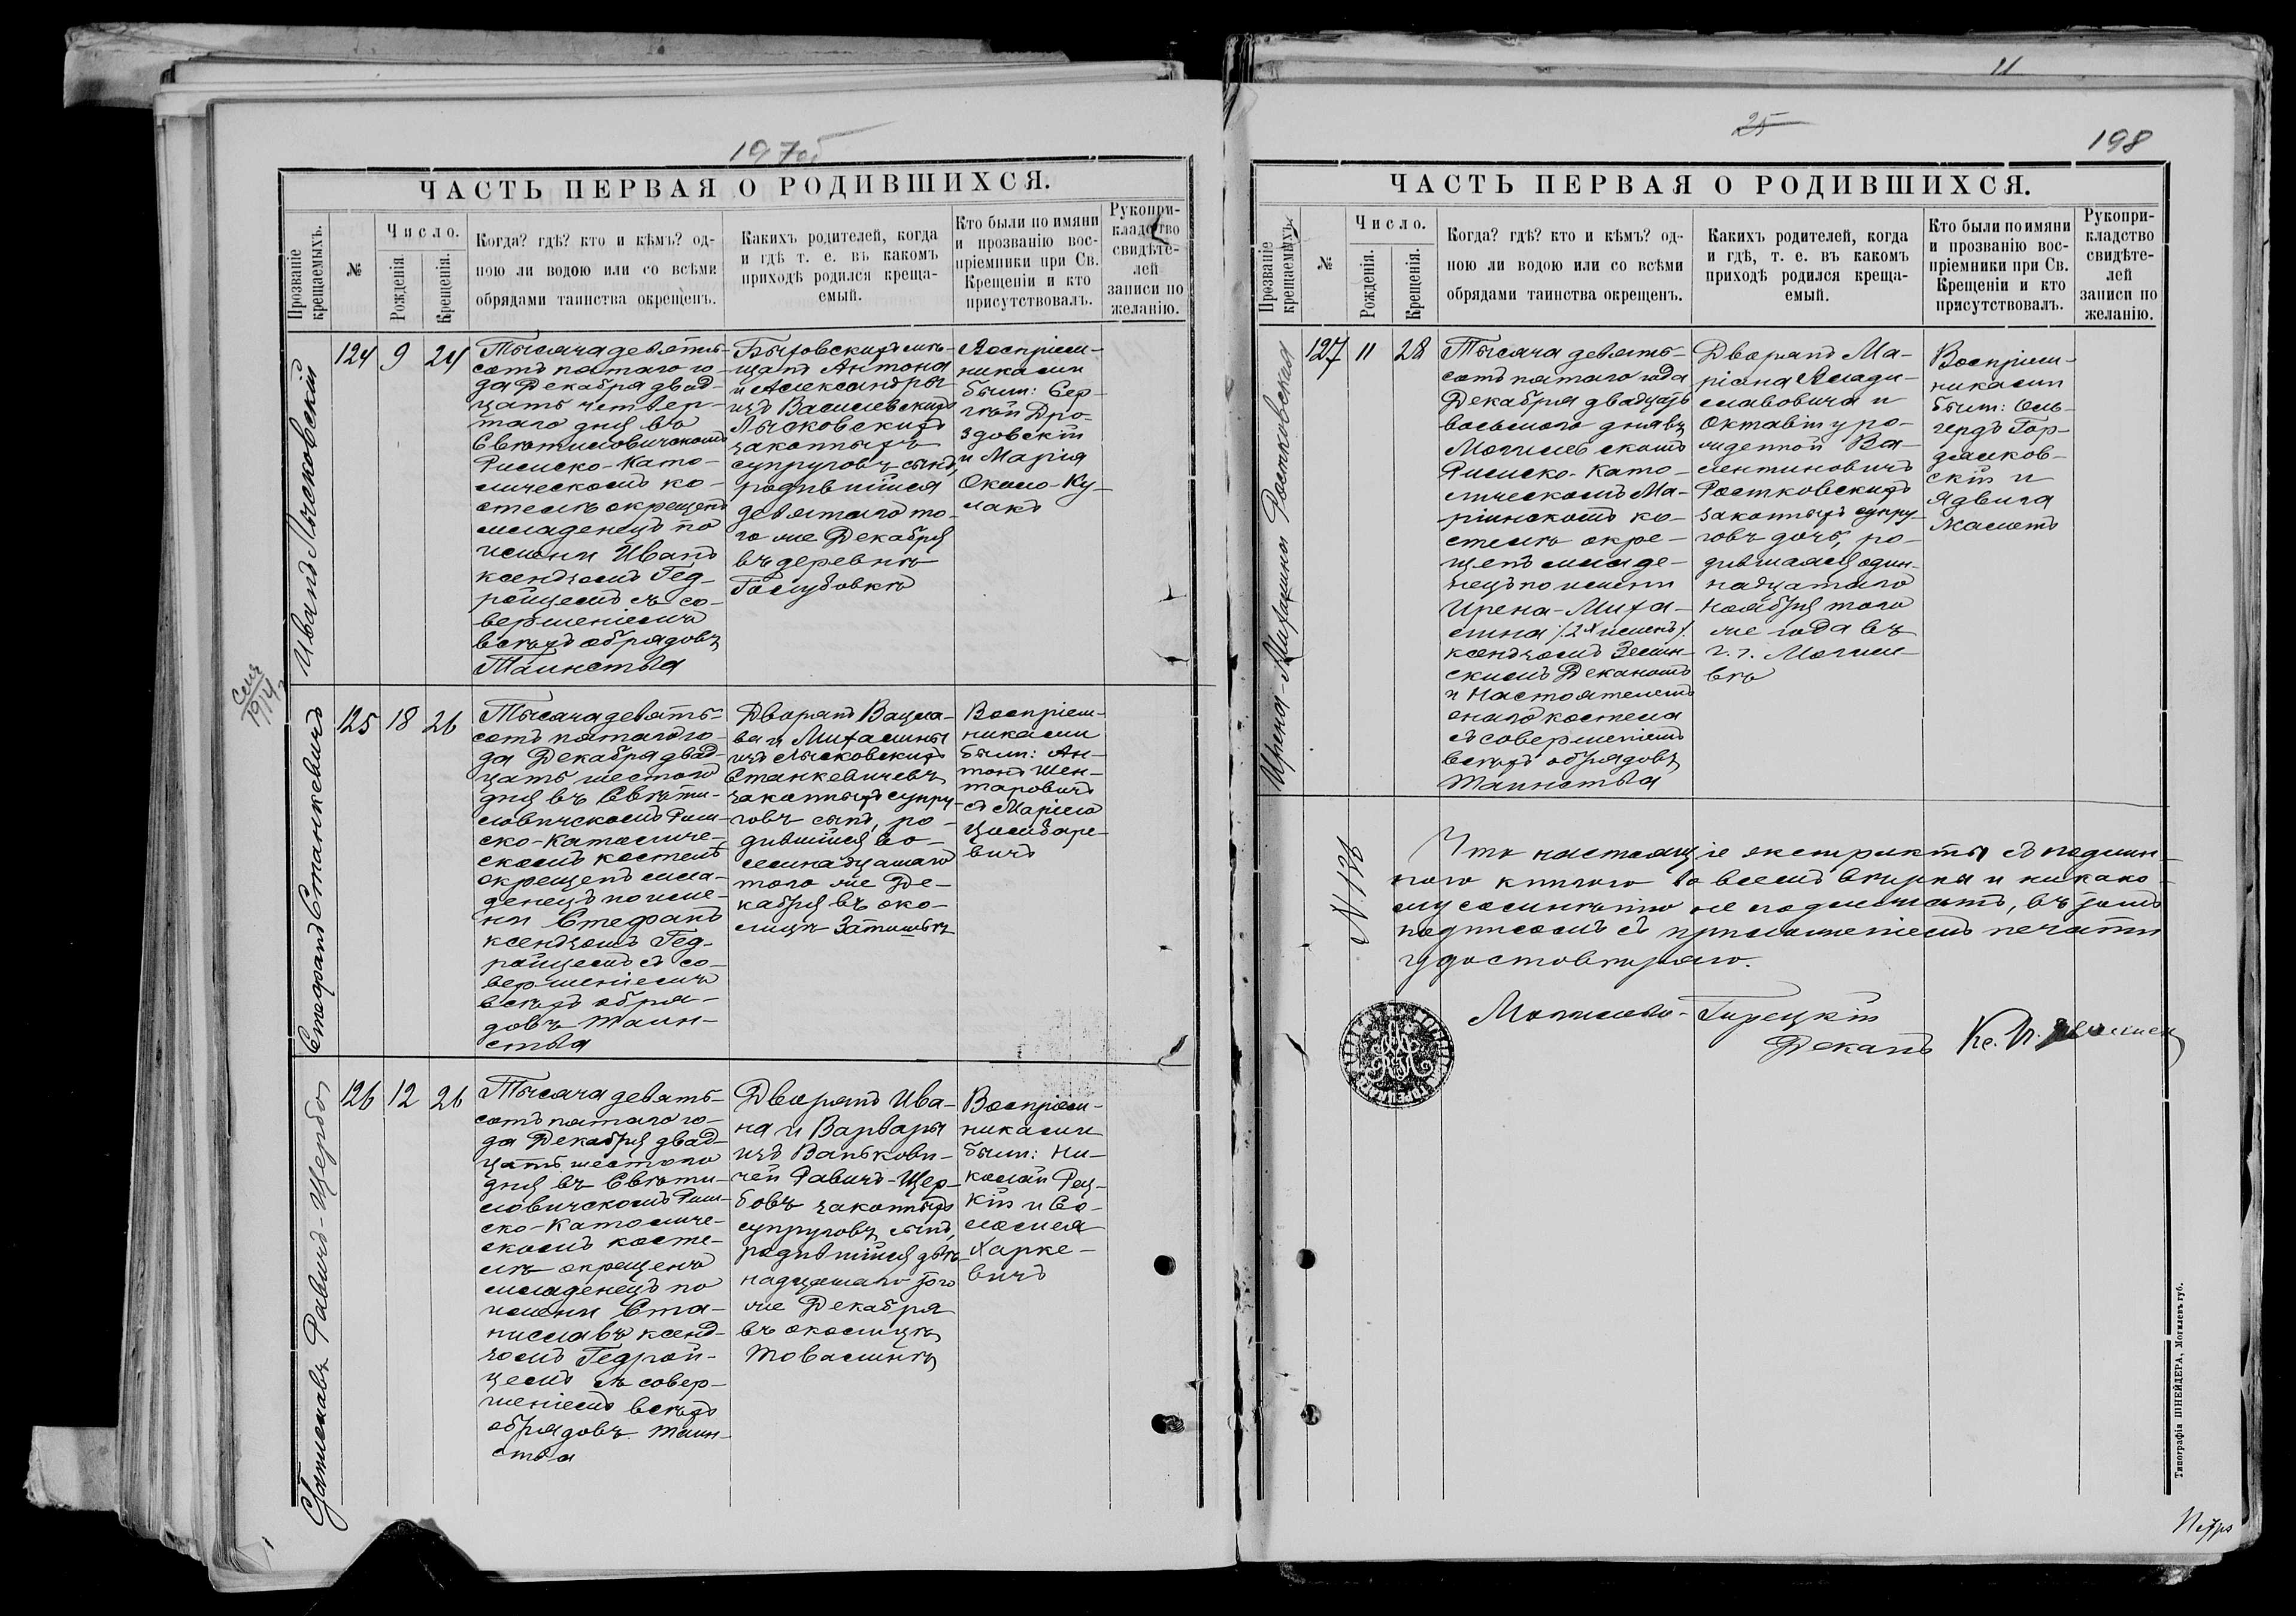 197об
ЧАСТЬ ПЕРВАЯ О РОДИВШИХСЯ.
Прозваніе крещаемыхъ.
№
Число.
Рожденія.
Крещенія.
Когда? гдѣ? кто и кѣмъ? од-
ною ли водою или со всѣми
обрядами таинства окрещенъ.
Какихъ родителей, когда
и гдѣ т. е. въ какомъ
приходѣ родился креща-
емый.
Кто были по имяни
и прозванію вос-
пріемники при Св.
Крещеніи и кто
присутствовалъ.
Рукопри-
кладство
свидѣте-
лей
записи по
желанію.
Иванъ Лысковскій
124
9
24
Тысяча девять-
сотъ пятаго го-
да Декабря двад-
цать четвер-
таго дня въ
Святиловичскомъ
Римско-Като-
лическомъ ко-
стелѣ окрещенъ
младенецъ по
имени Иванъ
ксендзомъ Гед-
ройцемъ съ со-
вершеніемъ
всѣхъ обрядовъ
Таинства
Быховскихъ мѣ-
щанъ Антона
и Александры
изъ Василевскихъ
Лысковскихъ
законныхъ
супруговъ сынъ,
родившійся
девятаго то-
го же Декабря
въ деревнѣ
Голубовкѣ
Воспріем-
никами
были: Сер-
гѣй Дро-
здовскій
и Марія
Около-Ку-
лакъ
1914 г.
Стефанъ Станкевичъ
125
18
26
Тысяча девять-
сотъ пятаго го-
да Декабря двад-
цать шестого
дня въ Святи-
ловичскомъ Рим-
ско-Католиче-
скомъ костелѣ
окрещенъ мла-
денецъ по име-
ни Стефанъ
ксендзомъ Гед-
ройцемъ съ со-
вершеніемъ
всѣхъ обря-
довъ таин-
ства
Дворянъ Вацла-
ва и Михалины
изъ Лысковскихъ
Станкевичевъ
законныхъ супру-
говъ сынъ, ро-
дившійся во-
семнадцатаго
того же Де-
кабря въ око-
лицѣ Затишьѣ
Воспріем-
никами
были: Ан-
тонъ Шен-
таровичъ
съ Маріею
Цымбаре-
вичъ
Станиславъ Равичъ-Щербо
126
12
26
Тысяча девять-
сотъ пятаго го-
да Декабря двад-
цать шестого
дня въ Святи-
ловичскомъ Рим-
ско-Католиче-
скомъ косте-
лѣ окрещенъ
младенецъ по
имени Ста-
ниславъ ксенд-
зомъ Гедрой-
цемъ съ совер-
шеніемъ всѣхъ
обрядовъ таин-
ства
Дворянъ Ива-
на и Варвары
изъ Ванькови-
чей Равичъ-Щер-
бовъ законныхъ
супруговъ сынъ,
родившійся двѣ-
надцатаго того
же Декабря
въ околицѣ
Товалинѣ
Воспріем-
никами
были: Ни-
колай Рец-
кій и Со-
ломея
Харке-
вичъ
11
25
198
ЧАСТЬ ПЕРВАЯ О РОДИВШИХСЯ.
Прозваніе крещаемыхъ.
№
Число.
Рожденія.
Крещенія.
Когда? гдѣ? кто и кѣмъ? од-
ною ли водою или со всѣми
обрядами таинства окрещенъ.
Какихъ родителей, когда
и гдѣ, т. е. въ какомъ
приходѣ родился креща-
емый.
Кто были по имяни
и прозванію вос-
пріемники при Св.
Крещеніи и кто
присутствовалъ.
Рукопри-
кладство
свидѣте-
лей
записи по
желанію.
Ирена-Михалина Ростковская
127
11
28
Тысяча девять-
сотъ пятаго года
Декабря двадцать
восьмого дня въ
Могилевскомъ
Римско-Като-
лическомъ Ма-
ріинскомъ ко-
стелѣ окре-
щенъ младе-
нецъ по имени
Ирена-Миха-
лина /2х именъ/
ксендзомъЗемин-
скимъ Деканомъ
и Настоятелемъ
онаго костела
съ совершеніемъ
всѣхъ обрядовъ
Таинства
Дворянъ Ма-
ріана Влади-
славовича и
Октавіи уро-
жденной Ва-
лентиновичъ
Ростковскихъ
законныхъ супру-
говъ дочь, ро-
дившаяся один-
надцатаго
Ноября того
же года въ
г. г. Могиле-
вѣ
Воспріем-
никами
были: Оль-
гердъ Гор-
дзялков-
скій и
Ядвига
Жаметъ
№ 136
Что настоящіе экстракты съ подлин-
ною книгою во всемъ вѣрны и никако-
му сомнѣнію не подлежатъ, въ томъ
подписомъ съ приложеніемъ печати
удостовѣряю.
Могилево-Горецкій
Деканъ Кс. И.
Типографія ШНЕЙДЕРА, Могилевъ губ.